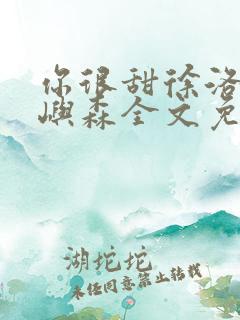 你很甜徐洛
屿森全文免
湖坨坨
未经同意禁止转载